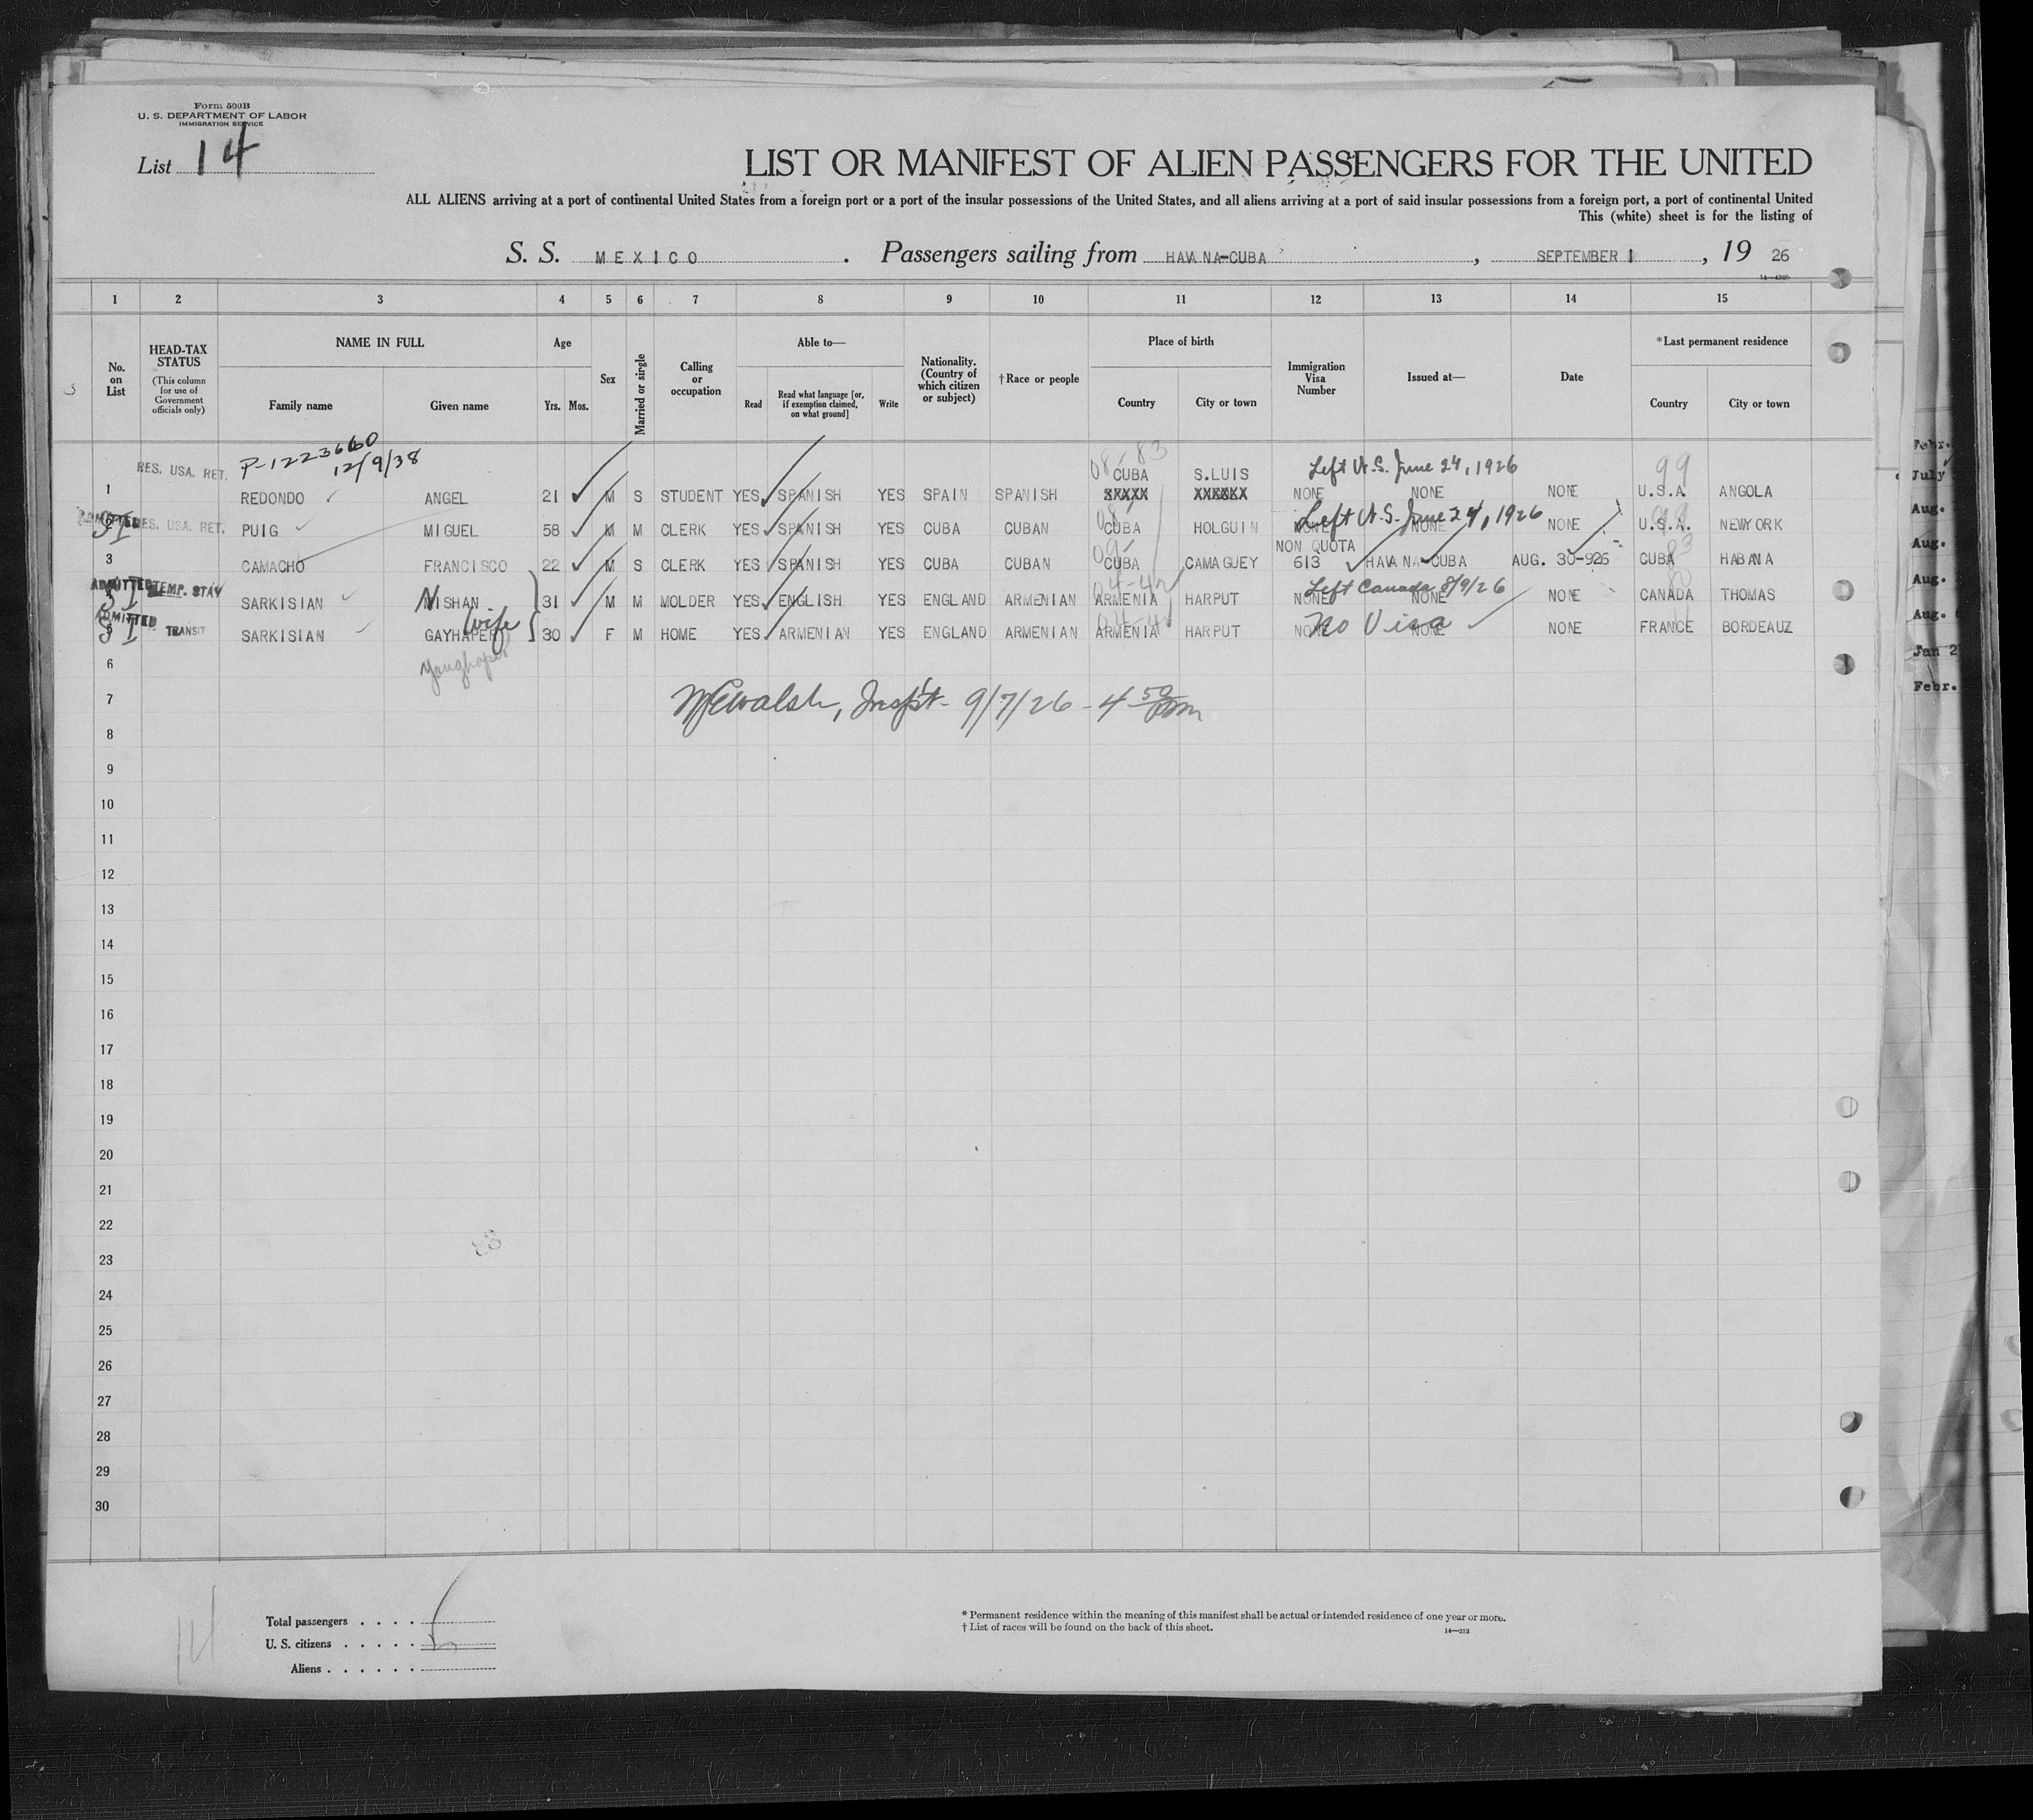 Form 500B
U. S. DEPARTMENT OF LABOR
IMMIGRATION SERVICE
List 14
LIST OR MANIFEST OF ALIEN PASSENGERS FOR THE UNITED
ALL ALIENS arriving at a port of continental United States from a foreign port or a port of the insular possessions of the United States, and all aliens arriving at a port of said insular possessions from a foreign port, a port of continental United
This (white) sheet is for the listing of
S. S. MEXICO . Passengers sailing from HAVANA-CUBA , SEPTEMBER 1 , 19 26
1 2 3 4 5 6 7 8 9 10 11 12 13 14 15
No. on List
HEAD-TAX STATUS (This column for use of Government officials only)
NAME IN FULL Family name Given name
Age Yrs. Mos.
Sex
Married or single
Calling or occupation
Able to— Read Read what language [or, if exemption claimed, on what ground] Write
Nationality. (Country of which citizen or subject)
†Race or people
Place of birth Country City or town
Immigration Visa Number
Issued at—
Date
*Last permanent residence Country City or town
P-1223660
12/9/38
08-83 CUBA S.LUIS Left U.S. June 24, 1926 99
1 RES. USA. RET. REDONDO ANGEL 21 M S STUDENT YES SPANISH YES SPAIN SPANISH XXXXX XXXXXX NONE NONE NONE U.S.A. ANGOLA
ADMITTED SI RES. USA. RET. PUIG MIGUEL 58 M M CLERK YES SPANISH YES CUBA CUBAN CUBA HOLGUIN NONE NONE Left U.S. June 24, 1926 NONE U.S.A. NEWYORK
NON QUOTA
3 CAMACHO FRANCISCO 22 M S CLERK YES SPANISH YES CUBA CUBAN CUBA CAMAGUEY 613 HAVANA-CUBA AUG. 30-926 CUBA HABANA
ADMITTED SI TEMP. STAY SARKISIAN NISHAN 31 M M MOLDER YES ENGLISH YES ENGLAND ARMENIAN ARMENIA HARPUT NONE NONE Left Canada 8/9/26 NONE CANADA THOMAS
wife
ADMITTED SI TRANSIT SARKISIAN GAYHAPER 30 F M HOME YES ARMENIAN YES ENGLAND ARMENIAN ARMENIA HARPUT NONE NONE No Visa NONE FRANCE BORDEAUZ
6
7
Insp't- 9/7/26 - 4 50 pm
8
9
10
11
12
13
14
15
16
17
18
19
20
21
22
23
24
25
26
27
28
29
30
14
Total passengers . . . .
U. S. citizens . . . . .
Aliens . . . . . .
* Permanent residence within the meaning of this manifest shall be actual or intended residence of one year or more.
† List of races will be found on the back of this sheet.
14—213
Febr.
July
Aug.
Aug.
Aug.
Aug.
Jan 2
Febr.